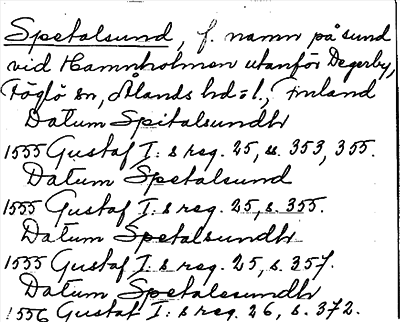 Spetalsund, f. namn på sund
vid Hamnholmen utanför Degerby,
Föglö sn, Ålands hd : l., Finland
Datum Spitalsundh
1555 Gustaf I : s reg. 25, ss. 353, 355.
Datum Spetalsund
1555 Gustaf I : s reg. 25, s. 355.
Datum Spetalsundh
1555 Gustaf I : s reg. 25, s. 357.
Datum Spetalessundh
1556 Gustaf I : s reg. 26, s. 372.